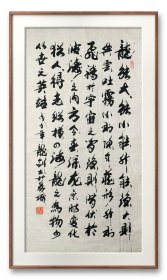 龍能大能小能升能隱大則
興雲吐霧小則隱介藏形升則
飛騰於宇宙之間隱則潛伏於
波濤之內方今春深龍乘時變化
猶人得志縱橫四海龍之為物可
比世之英雄